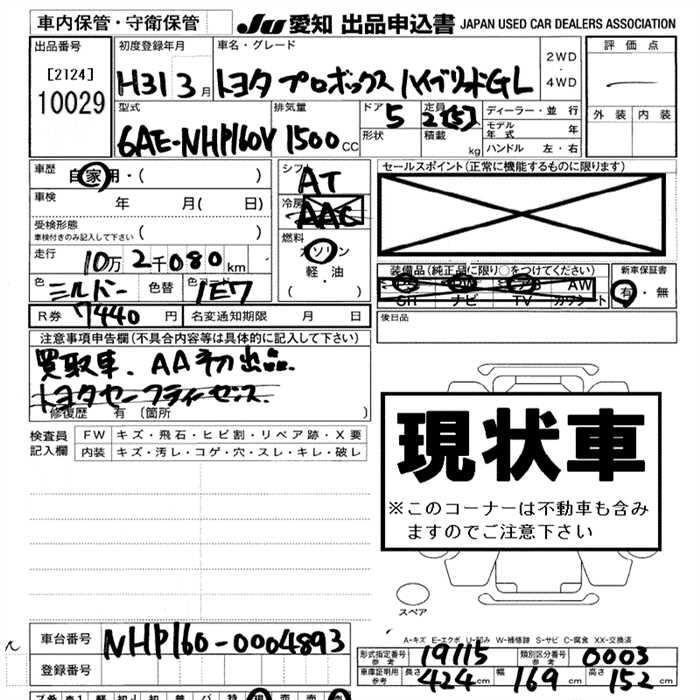 車内保管・守衛保管 JU 愛知 出品申込書 JAPAN USED CAR DEALERS ASSOCIATION
出品番号 初度登録年月 車名・グレード 評価点
[2124] H31 3月 トヨタ プロボックス ハイブリッドGL 2WD 4WD
10029
型式 排気量 ドア 5 定員 2[5] ディーラー・並行 外装 内装
6AE-NHP160V 1500CC 形状 積載 kg モデル年式 年
ハンドル 左・右
車歴 自家用・( ) シフト AT セールスポイント(正常に機能するものに限ります)
車検 年 月( 日) 冷房 AAC
受検形態 車検付きのみ記入して下さい ( ) 燃料 ガソリン
走行 10万2千080km 軽・油 装備品(純正品に限り○をつけてください) 新車保証書
色 シルバー 色替 色コード 1E7 ( ) PS PW AB AW 有・無
SR ナビ TV カワシート
R券 7440円 名変通知期限 月 日 後日品
注意事項申告欄(不具合内容等は具体的に記入して下さい)
買取車、AA初出品。
トヨタセーフティセンス
修復歴 有 〔箇所 〕
検査員記入欄 FW キズ・飛石・ヒビ割・リペア跡・X要
内装 キズ・汚レ・コゲ・穴・スレ・キレ・破レ
現状車
※このコーナーは不動車も含み
ますのでご注意下さい
スペア
A-キズ E-エクボ U-凹み W-補修跡 S-サビ C-腐食 XX-交換済
車台番号 NHP160-0004893 形式指定番号 参考 19115 類別区分番号 参考 0003
登録番号 車庫証明用 参考 長さ 424cm 幅 169cm 高さ 152cm